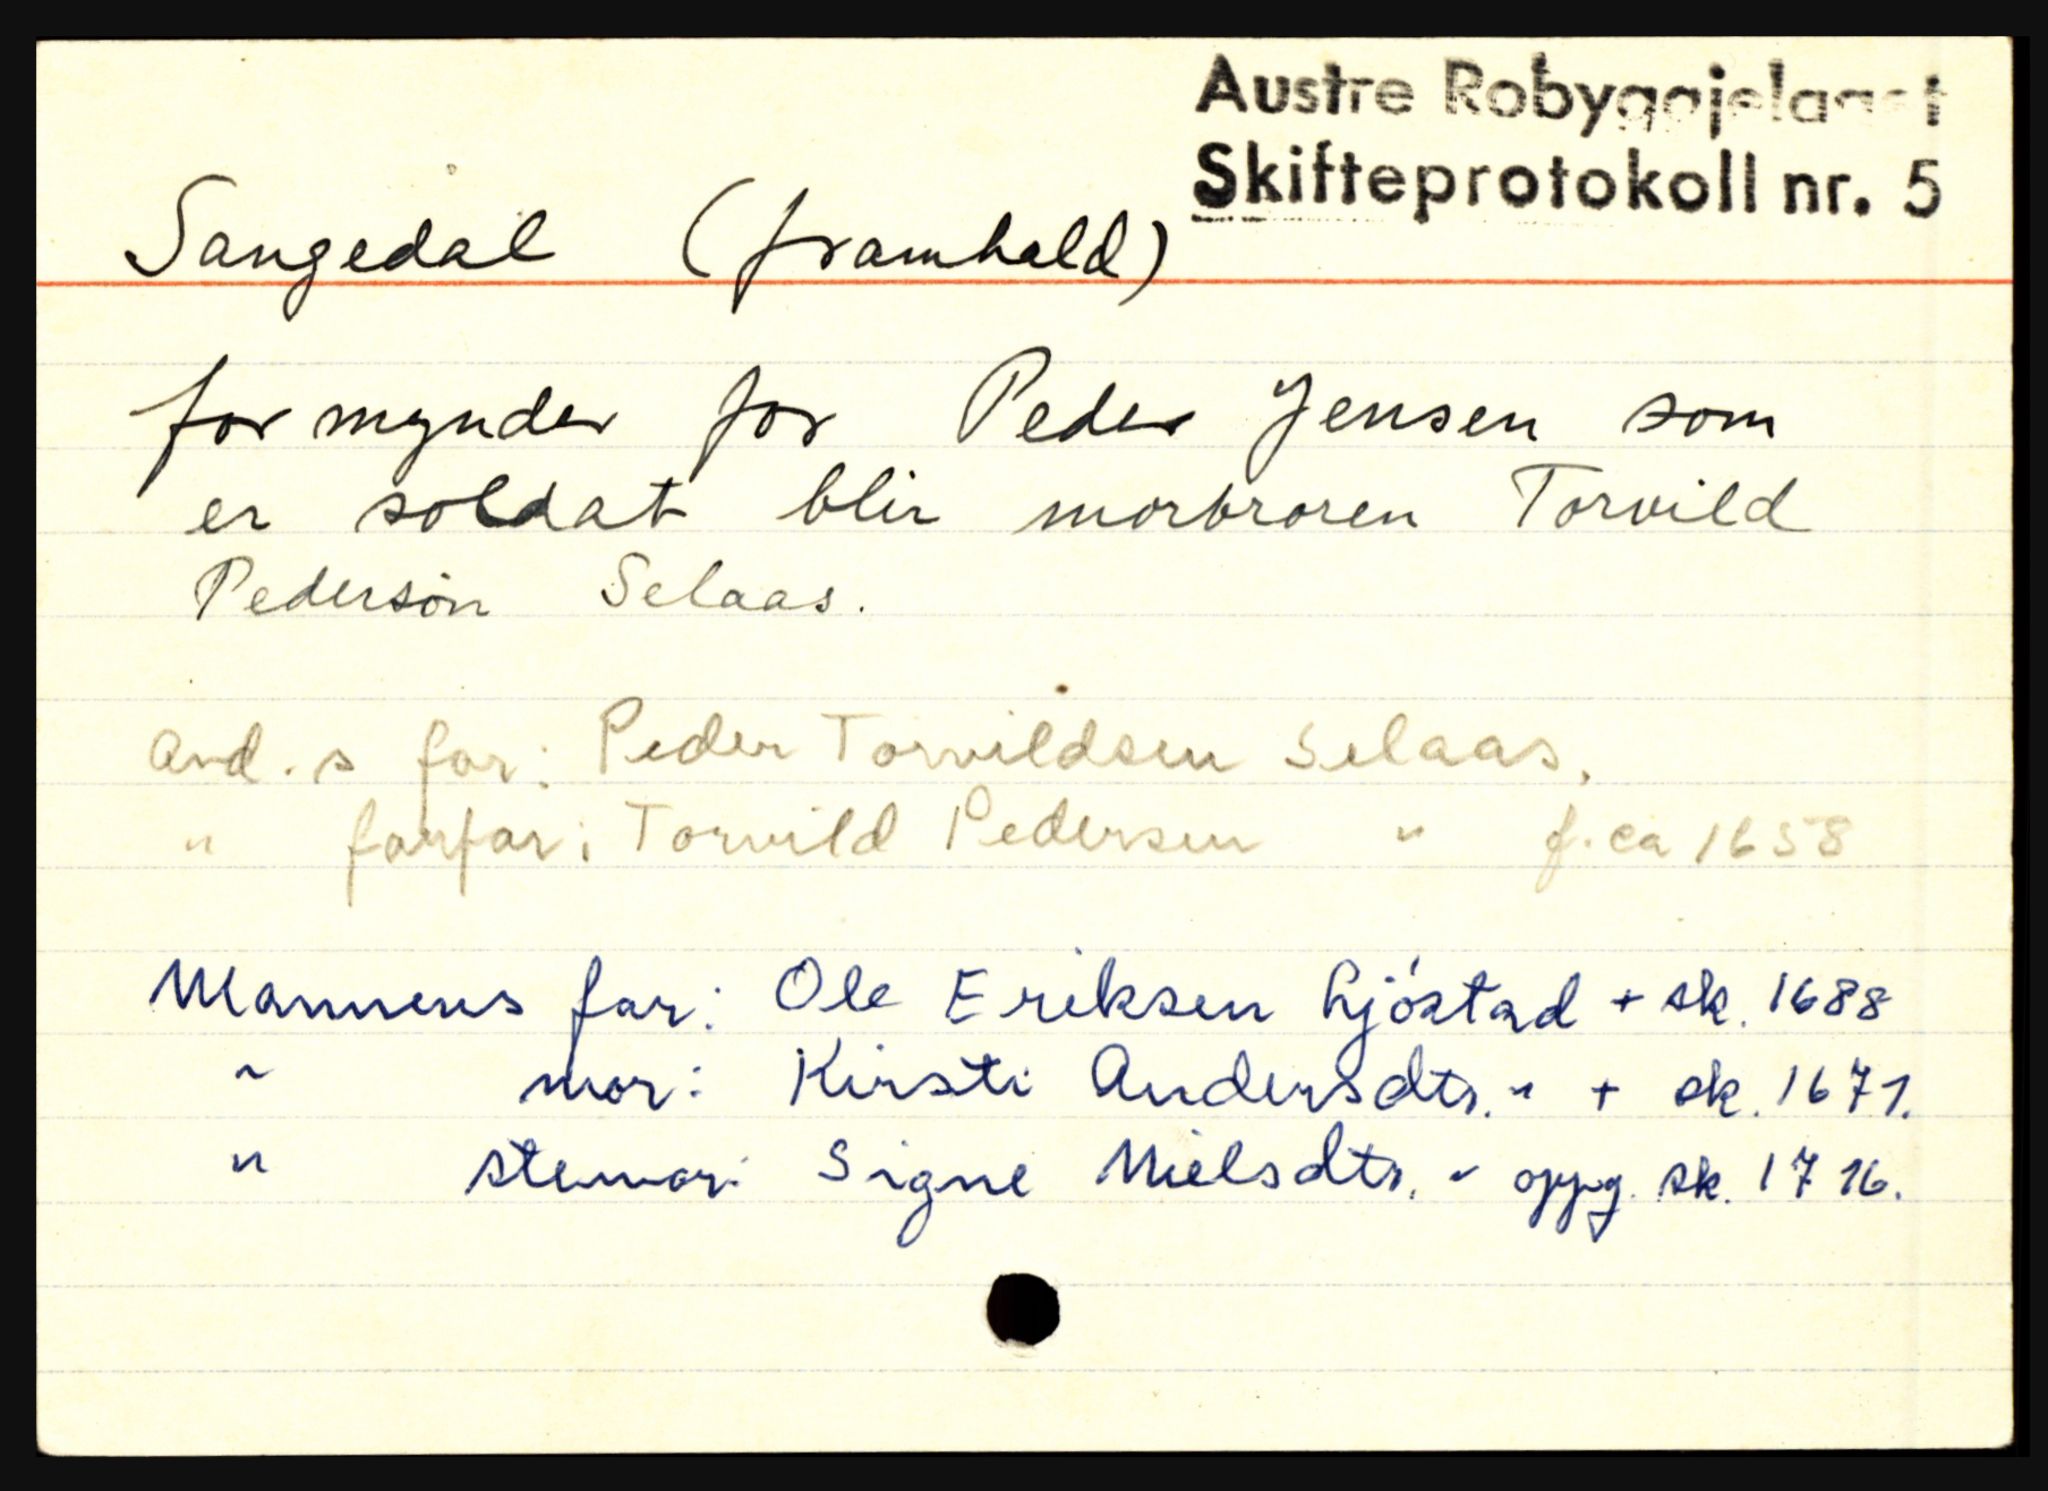 Austre Robyggjelaget
Skifteprotokoll nr. 5
Sangedal (framhald)
formynder for Peder Jensen som
er soldat blir morbroren Torvild
Pedersøn Selaas.
avd. s far: Peder Torvildsen Selaas.
" farfar: Torvild Pedersen " f. ca 1658
Mannens far: Ole Eriksen Ljøstad + sk. 1688
" mor: Kirsti Andersdtr. " + sk. 1671.
" stemor: Signe Nielsdtr. " oppg. sk. 1716.